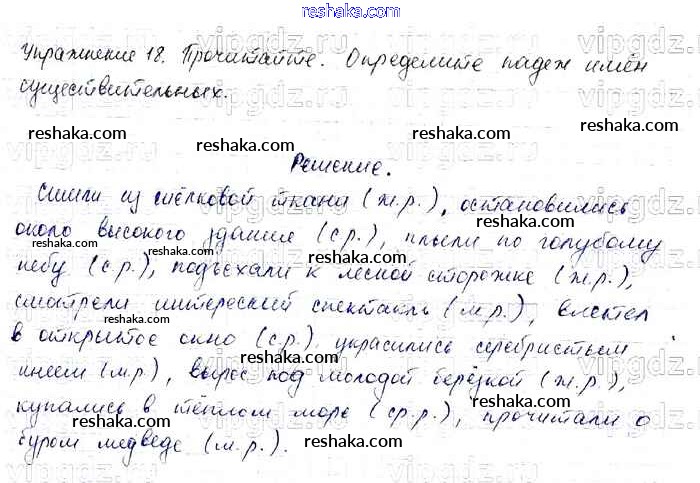 reshaka.com
Упражнение 18. Прочитайте. Определите падеж имён
существительных.
reshaka.com reshaka.com reshaka.com
Решение.
reshaka.com
Сшили из шёлковой ткани (ж.р.), остановились
reshaka.com
около высокого здания (с.р.), плыли по голубому
reshaka.com
небу (с.р.), подъехали к лесной сторожке (ж.р.),
reshaka.com reshaka.com
смотрели интересный спектакль (м.р.), влетел
reshaka.com
в открытое окно (с.р.), украсились серебристым
reshaka.com reshaka.com
инеем (м.р.), вырос под молодой берёзкой (ж.р.),
reshaka.com
купались в тёплом море (ср.р.), прочитали о
reshaka.com reshaka.com
буром медведе (м.р.).
reshaka.com